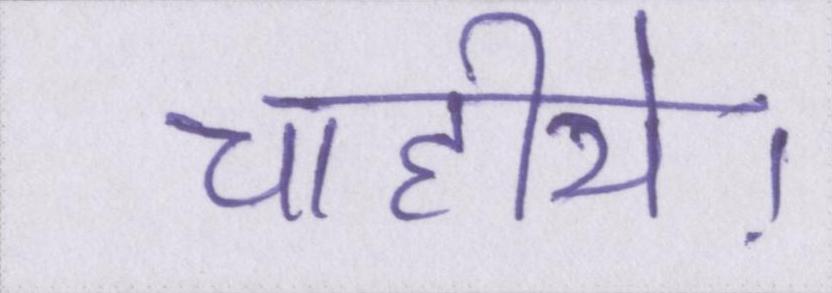 चाहीये।